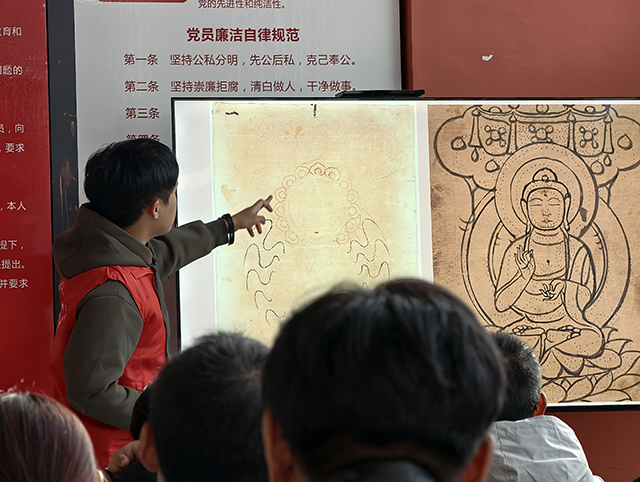 教育和
问题的
员，向
，要求
，本人
提下，
提出。
并要求
党的先进性和纯洁性。
党员廉洁自律规范
第一条 坚持公私分明，先公后私，克己奉公。
第二条 坚持崇廉拒腐，清白做人，干净做事。
第三条
第四条